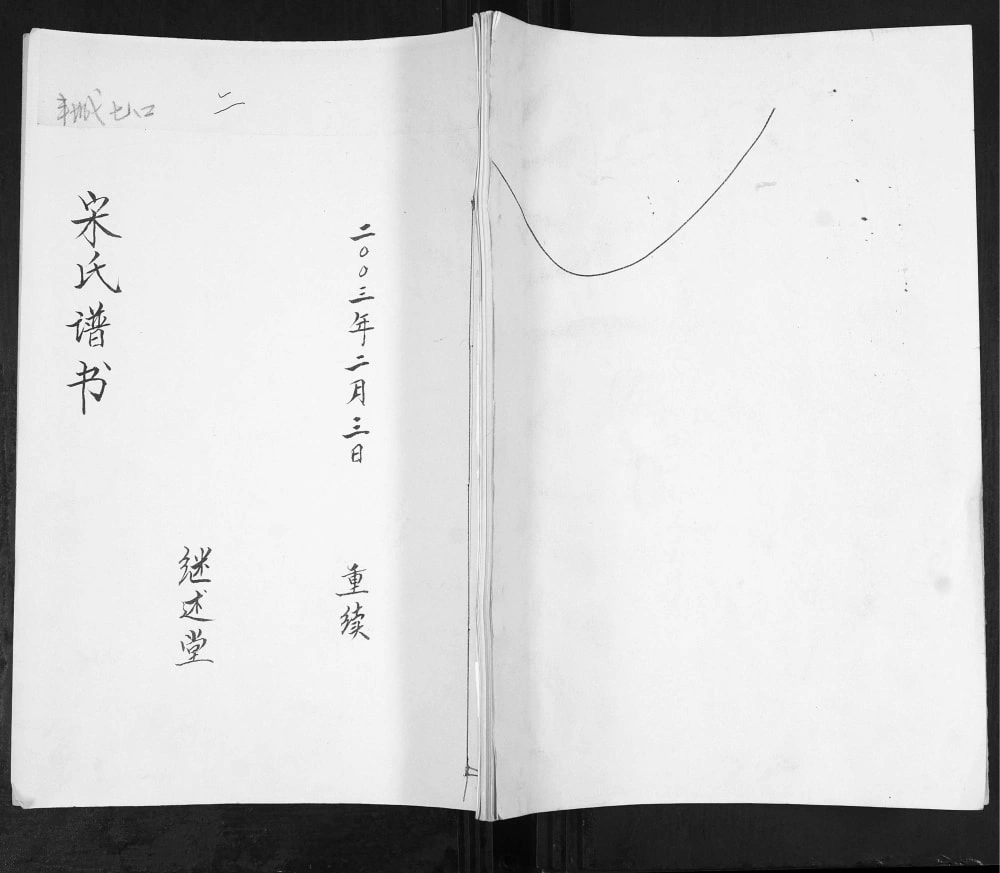 二
宋氏谱书
二〇〇三年二月三日
重续
继述堂